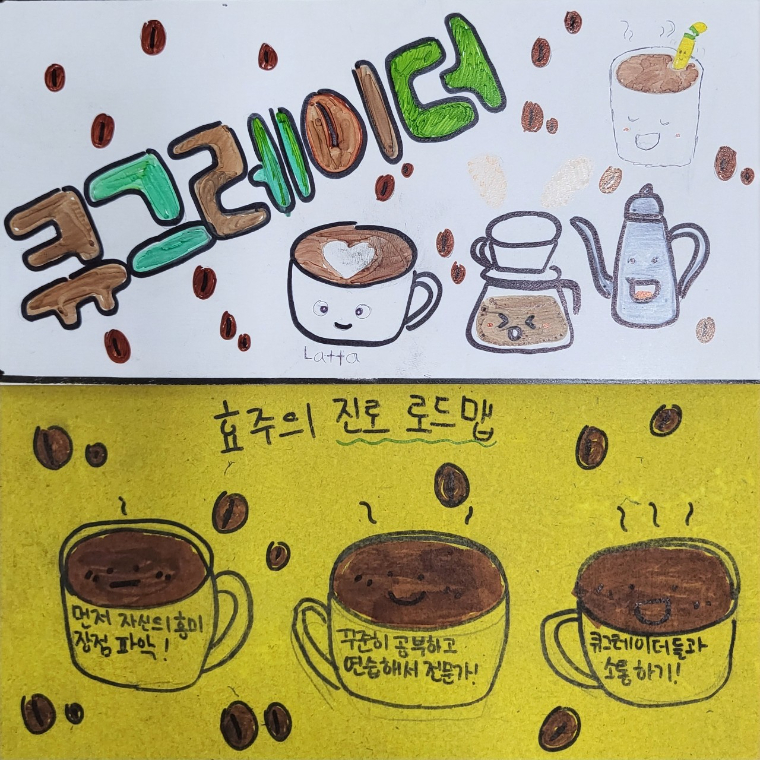 큐그레이더
Latta
효주의 진로 로드맵
먼저 자신의 흥미
장점 파악!
꾸준히 공부하고
연습해서 전문가!
큐그레이더들과
소통하기!